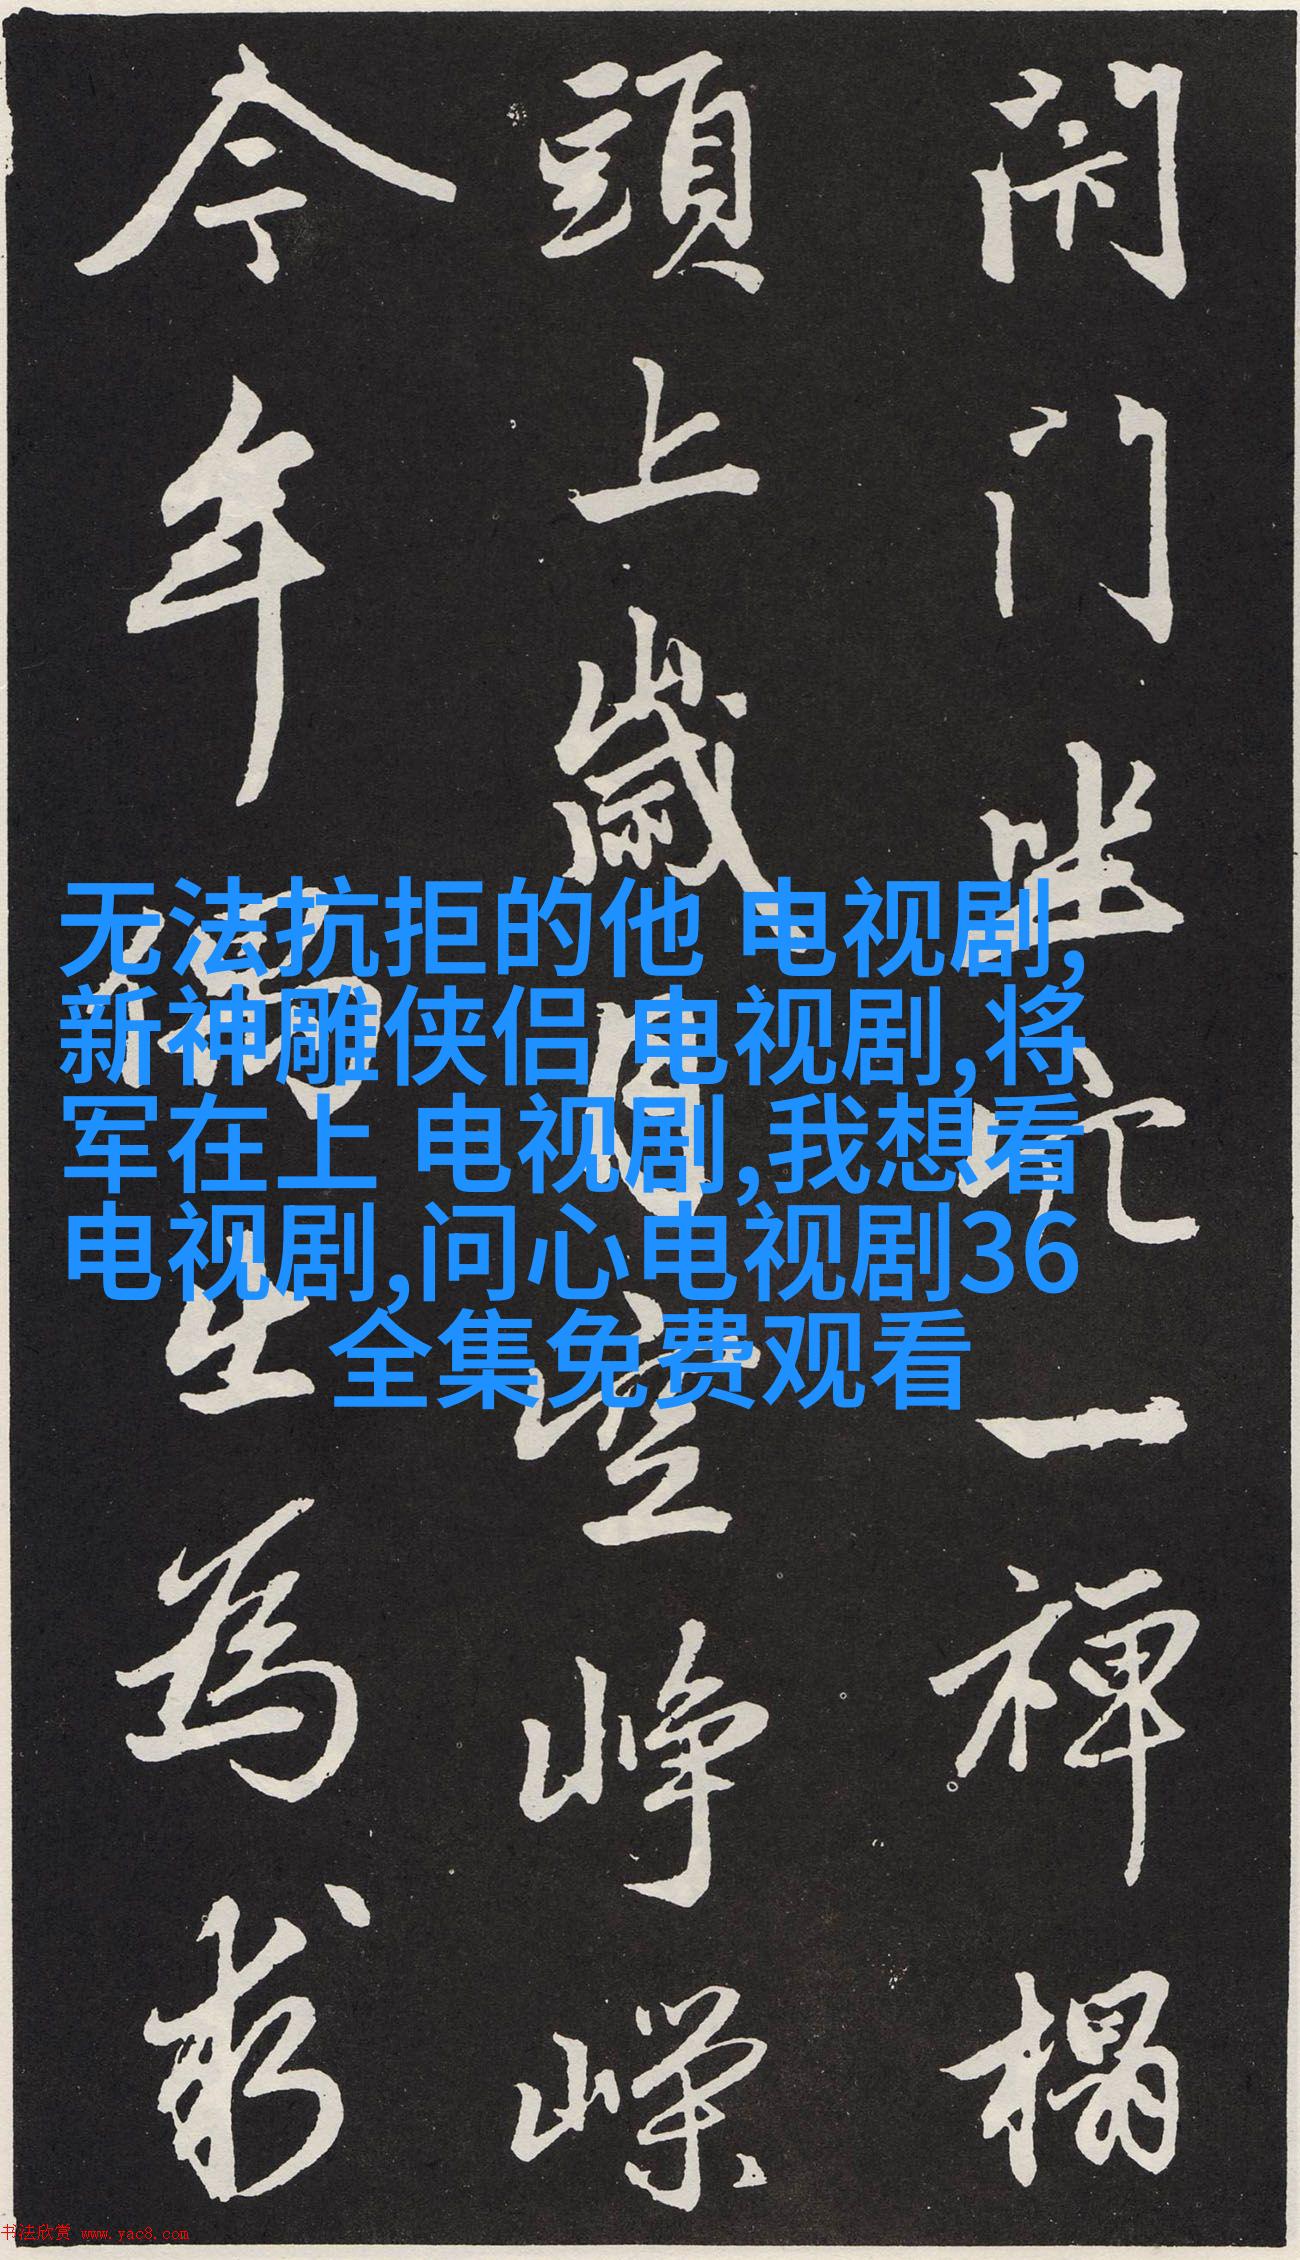 闭门坐穴一禅榻
頭上歲月空崢嶸
今年偶出為求
无法抗拒的他 电视剧,
新神雕侠侣 电视剧,将
军在上 电视剧,我想看
电视剧,问心电视剧36
全集免费观看
书法欣赏 www.yac8.com